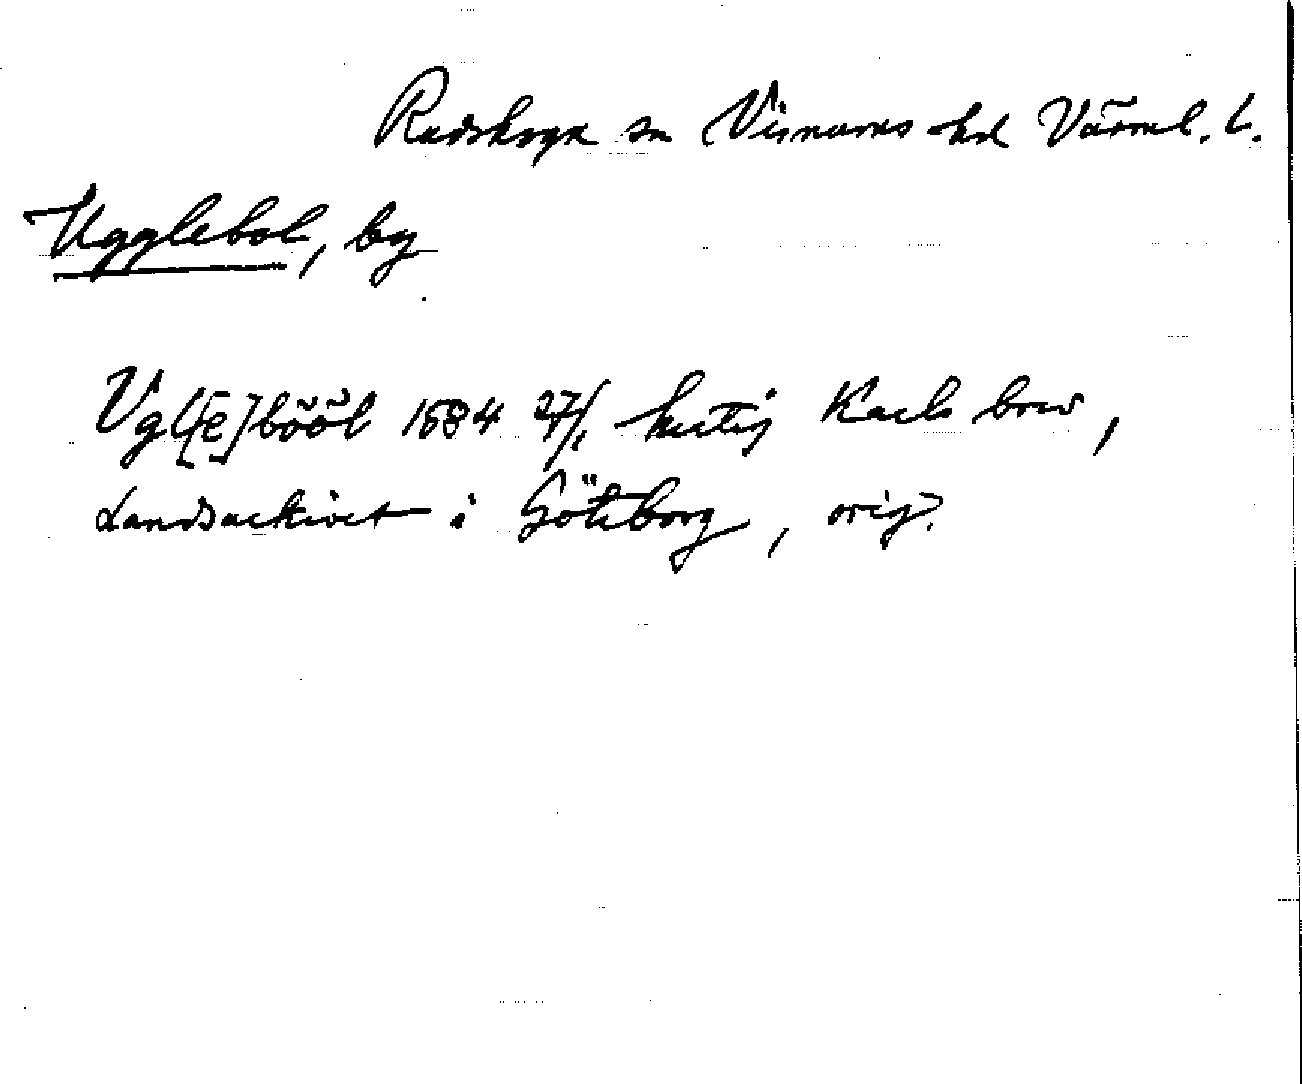 Rudskoga sn Visnums hd Värml. l.
Ugglebol, by
Vgl[e]bööl 1584 27/1 hertig Karls brev,
Landsarkivet i Göteborg, orig.